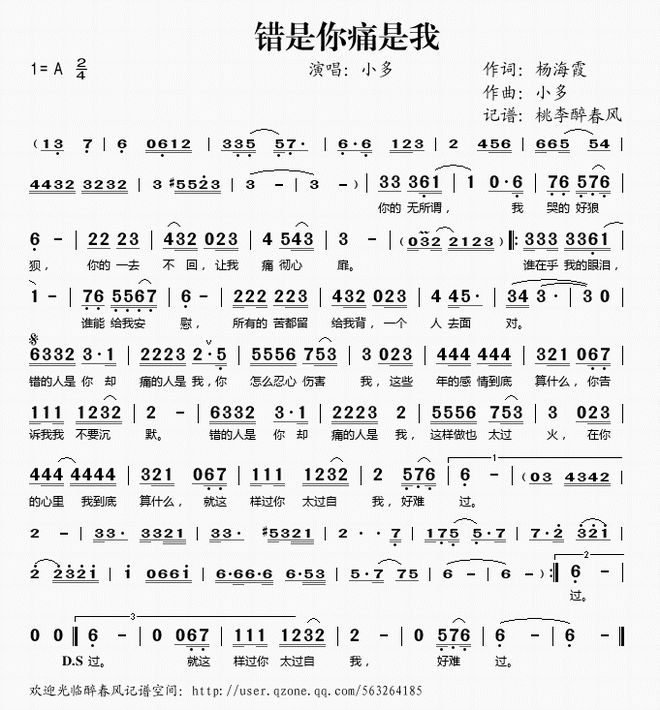 错是你痛是我
1= A 2/4
演唱：小多
作词：杨海霞
作曲：小多
记谱：桃李醉春风
( 13 7 | 6 0612 | 335 57· | 6·6 123 | 2 456 | 665 54 |
4432 3232 | 3 #5523 | 3 - | 3 - ) | 33 361 | 1 0·6 | 76 576 |
你的 无所谓， 我 哭的 好狼
6 - | 22 23 | 432 023 | 4 543 | 3 - | (032 2123) ‖: 333 3361 |
狈， 你的 一去 不 回，让我 痛 彻心 扉。 谁在乎 我的眼泪，
1 - | 76 5567 | 6 - | 222 223 | 432 023 | 4 45· | 34 3· | 3 0 |
谁能 给我安 慰， 所有的 苦都留 给我背，一个 人 去面 对。
6332 3·1 | 2223 2·5 | 5556 753 | 3 023 | 444 444 | 321 067 |
错的人是 你 却 痛的人是 我，你 怎么忍心 伤害 我，这些 年的感 情到底 算什么，你告
111 1232 | 2 - | 6332 3·1 | 2223 2 | 5556 753 | 3 023 |
诉我我 不要沉 默。 错的人是 你 却 痛的人是 我，这样做也 太过 火，在你
444 4444 | 321 067 | 111 1232 | 2 576 | 6 - | (03 4342 |
的心里 我到底 算什么，就这 样过你 太过自 我，好难 过。
2 - | 33· 3321 | 33· #5321 | 2··7 | 175 5·7 | 7·2 321 |
2 2321 | 1 0661 | 6·66·6 6·53 | 5·7 75 | 6 - | 6 - ) :‖ 6 - |
过。
0 0 ‖ 6 - | 0 067 | 111 1232 | 2 - | 0 576 | 6 - | 6 - ‖
D.S 过。 就这 样过你 太过自 我， 好难 过。
欢迎光临醉春风记谱空间：http://user.qzone.qq.com/563264185